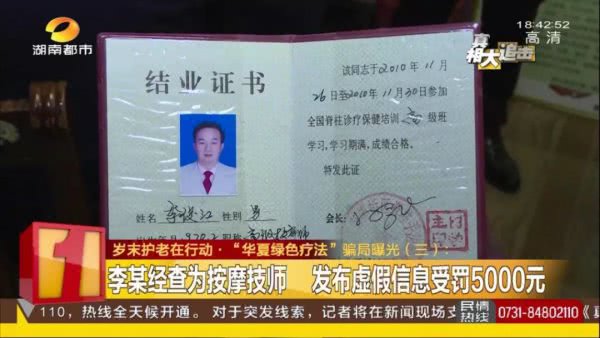 湖南都市
18:42:52
高清
真相大追击
结业证书
姓名
性别 男
该同志于2010年11月
26日至2010年11月30日参加
全国脊柱诊疗保健培训高级班
学习,学习期满,成绩合格。
特发此证
会长:
岁末护老在行动·“华夏绿色疗法”骗局曝光(三):
李某经查为按摩技师 发布虚假信息受罚5000元
110,热线全天候开通。对于突发线索,记者将在新闻现场支
民情热线
0731-84802110
《真